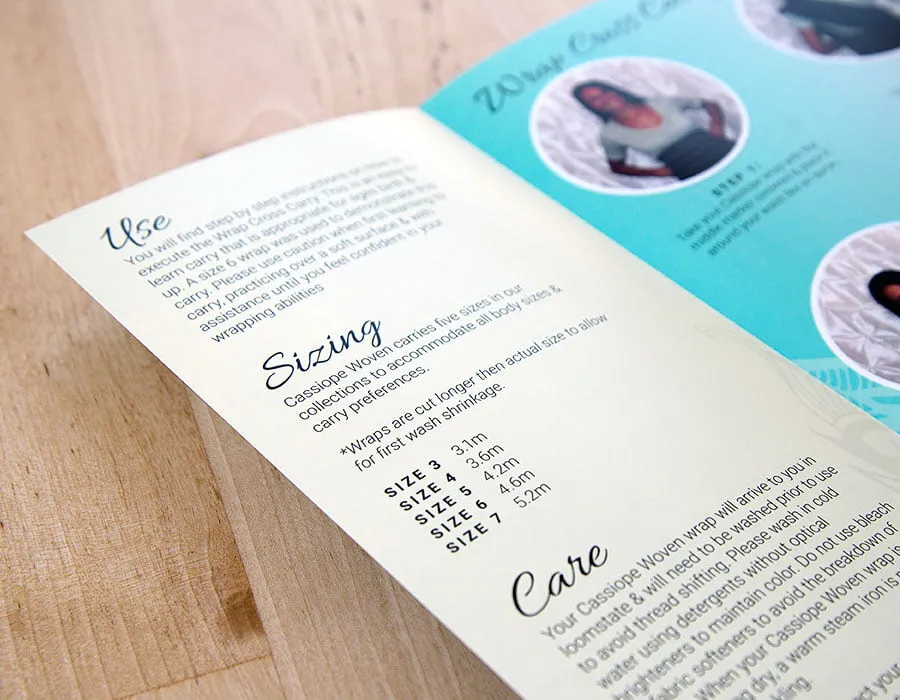 Use
You will find step by step instructions on how to
execute the Wrap Cross Carry. This is an easy to
learn carry that is appropriate for ages birth &
up. A size 6 wrap was used to demonstrate this
carry. Please use caution when first learning to
carry, practicing over a soft surface & with
assistance until you feel confident in your
wrapping abilities
Sizing
Cassiope Woven carries five sizes in our
collections to accommodate all body sizes &
carry preferences.
*Wraps are cut longer then actual size to allow
for first wash shrinkage.
SIZE 3 3.1m
SIZE 4 3.6m
SIZE 5 4.2m
SIZE 6 4.6m
SIZE 7 5.2m
Care
Your Cassiope Woven wrap will arrive to you in
loomstate & will need to be washed prior to use
to avoid thread shifting. Please wash in cold
water using detergents without optical
righteners to maintain color. Do not use bleach
bric softeners to avoid the breakdown of
when your Cassiope Woven wrap is
dry, a warm steam iron is
Wrap Cross
STEP 1:
Take your Cassiope wrap with the
middle marker centered & place it
around your waist like an apron.